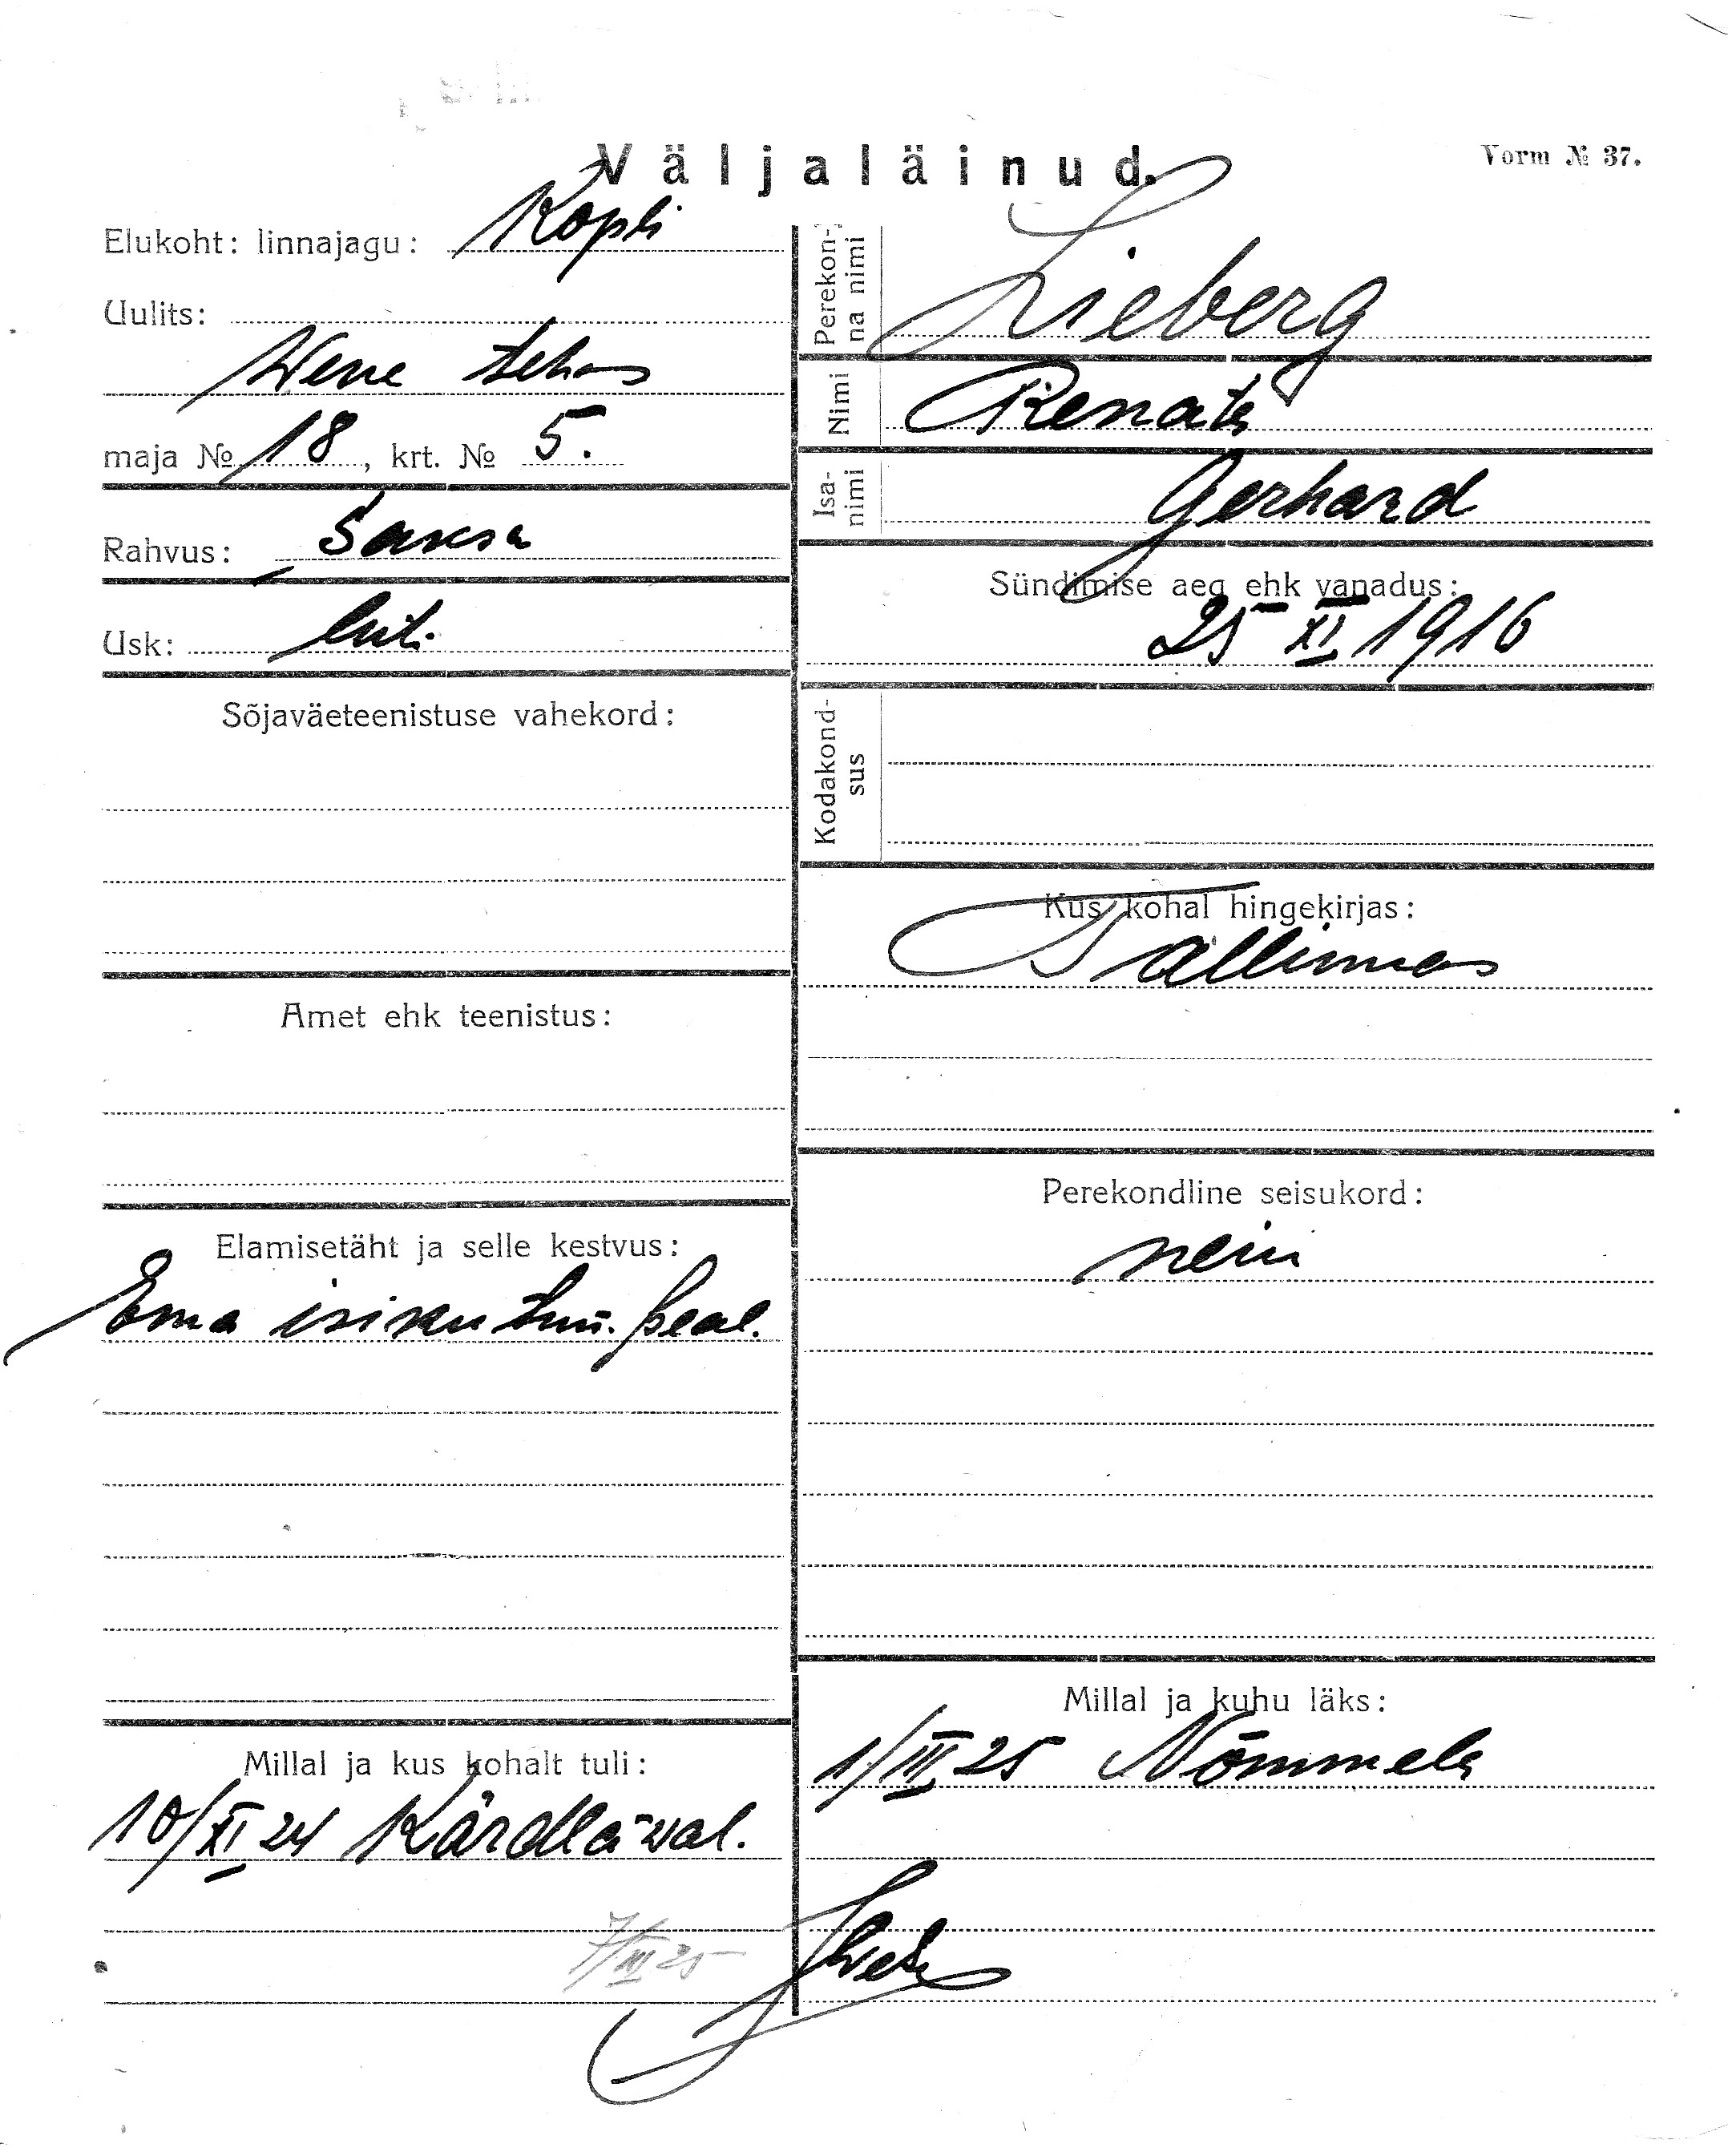 Väljaläinud.
Vorm № 37.
Elukoht: linnajagu: Kopli
Uulits:
Wene tehas
maja № 18, krt. № 5.
Rahvus: Saksa
Usk: lut.
Sõjaväeteenistuse vahekord:
Amet ehk teenistus:
Elamisetäht ja selle kestvus:
Ema isiku tun. peal.
Millal ja kus kohalt tuli:
10/XI 24 Kärdla wal.
7/III 25
Perekon-
na nimi
Lieberg
Nimi
Renata
Isa-
nimi
Gerhard
Sündimise aeg ehk vanadus:
25 XI 1916
Kodakond-
sus
Kus kohal hingekirjas:
Tallinnas
Perekondline seisukord:
neiu
Millal ja kuhu läks:
1/III 25 Nõmmele